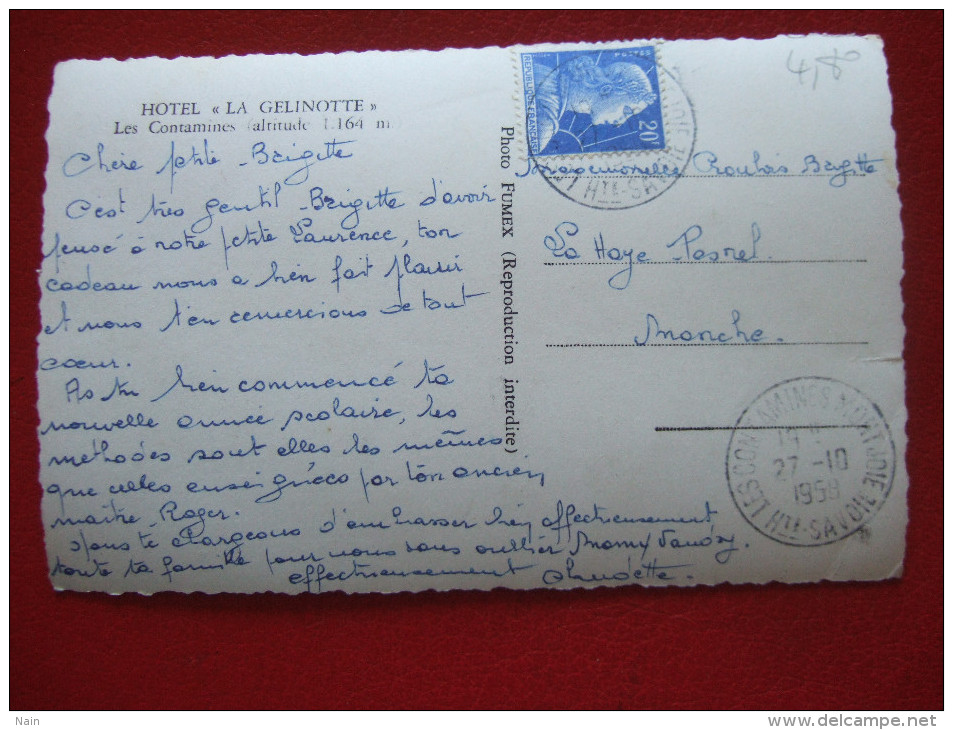 HOTEL « LA GELINOTTE »
Les Contamines (altitude 1.164 m)
Chère petite Brigitte
C'est très gentil Brigitte d'avoir
pensé à notre petite Laurence, ton
cadeau nous a bien fait plaisir
et nous t'en remercions de tout
cœur.
As tu bien commencé ta
nouvelle année scolaire, les
méthodes sont elles les mêmes
que celles enseignées par ton ancien
maître Roger.
Nous te chargeons d'embrasser bien affectueusement
toute ta famille pour nous sans oublier Mamy
affectueusement Claudette.
Photo FUMEX (Reproduction interdite)
POSTES
REPUBLIQUE FRANÇAISE
20F
JOIE
HTE-SAVOIE
4,80
Mademoiselle Brigitte
La Haye Pesnel.
Manche.
LES CONTAMINES MONTJOIE
27 -10
1958
HTE-SAVOIE
Nain
www.delcampe.net